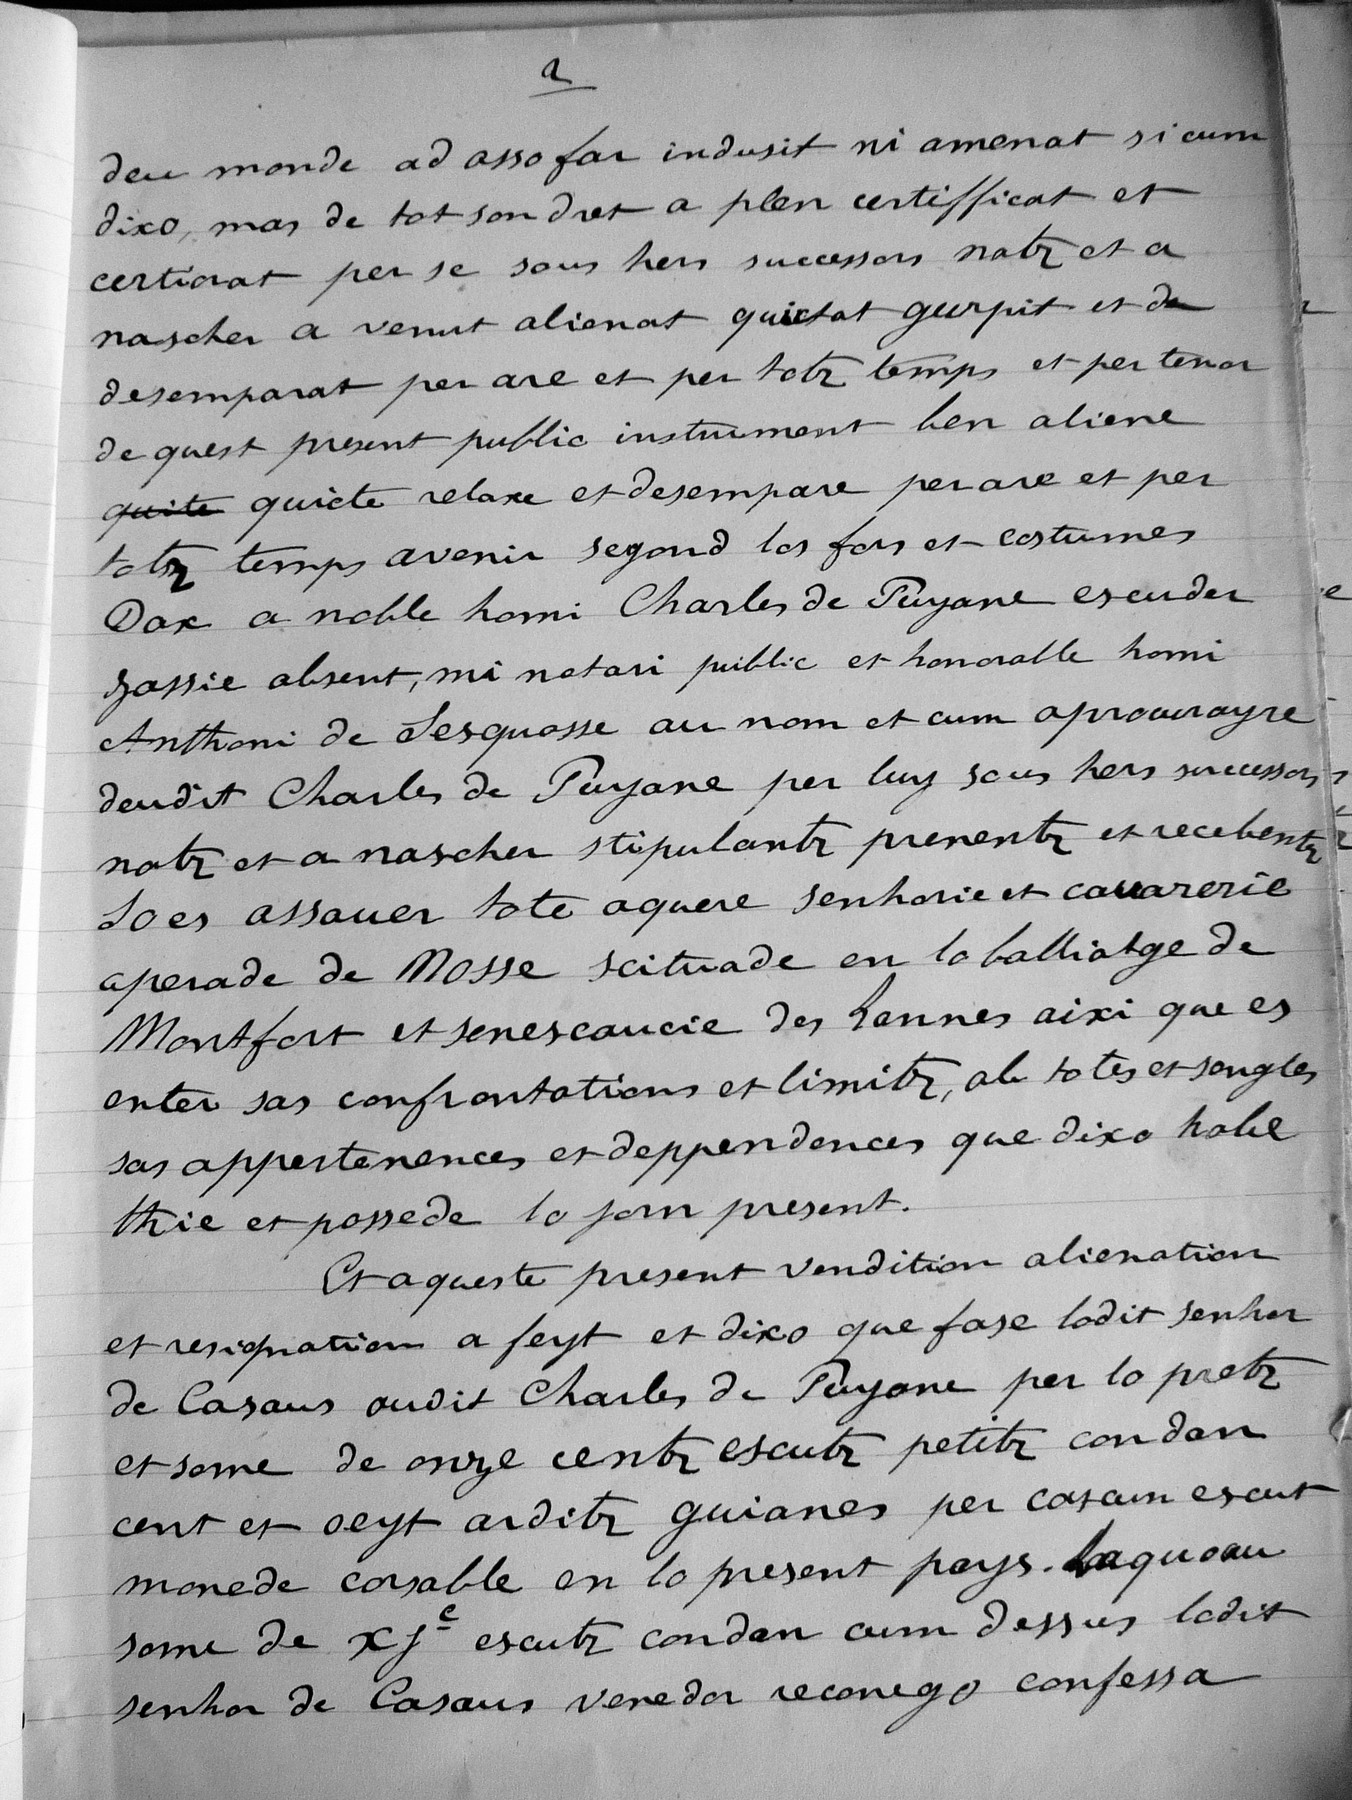 2
deu monde ad asso far indusit ni amenat si cum
dixo, mas de tot son dret a plen certifficat et
certiorat per se sous hers successors natz et a
nascher a venut alienat quictat gurpit et de
desemparat per are et per totz temps et per tenor
de quest present public instrument ben aliene
quite quicte relaxe et desempare per are et per
totz temps avenir segond los fors et costumes
Dax a noble homi Charles de Puyane escuder
gassie absent, mi notari public et honorable homi
Anthoni de Lesquosse au nom et cum a procurayre
deudit Charles de Puyane per luy sous hers successors
natz et a nascher stipulantz prenentz et recebentz
So es assauer tote aquere senhorie et cauarerie
aperade de Mosse scituade en lo balliatge de
Montfort et senescaucie des Lannes aixi que es
enter sas confrontations et limitz, ab totes et sengles
sas appertenences et deppendences que dixo habe
thie et possede lo jorn present.
Et aqueste present vendition alienation
et resignation a feyt et dixo que fase lodit senhor
de Casaus audit Charles de Puyane per lo pretz
et some de onze centz escutz petitz condan
cent et oeyt arditz guianes per cascun escut
monede corsable en lo present pays. Laquoau
some de xjᶜ escutz condan cum dessus lodit
senhor de Casaus venedor reconego confessa